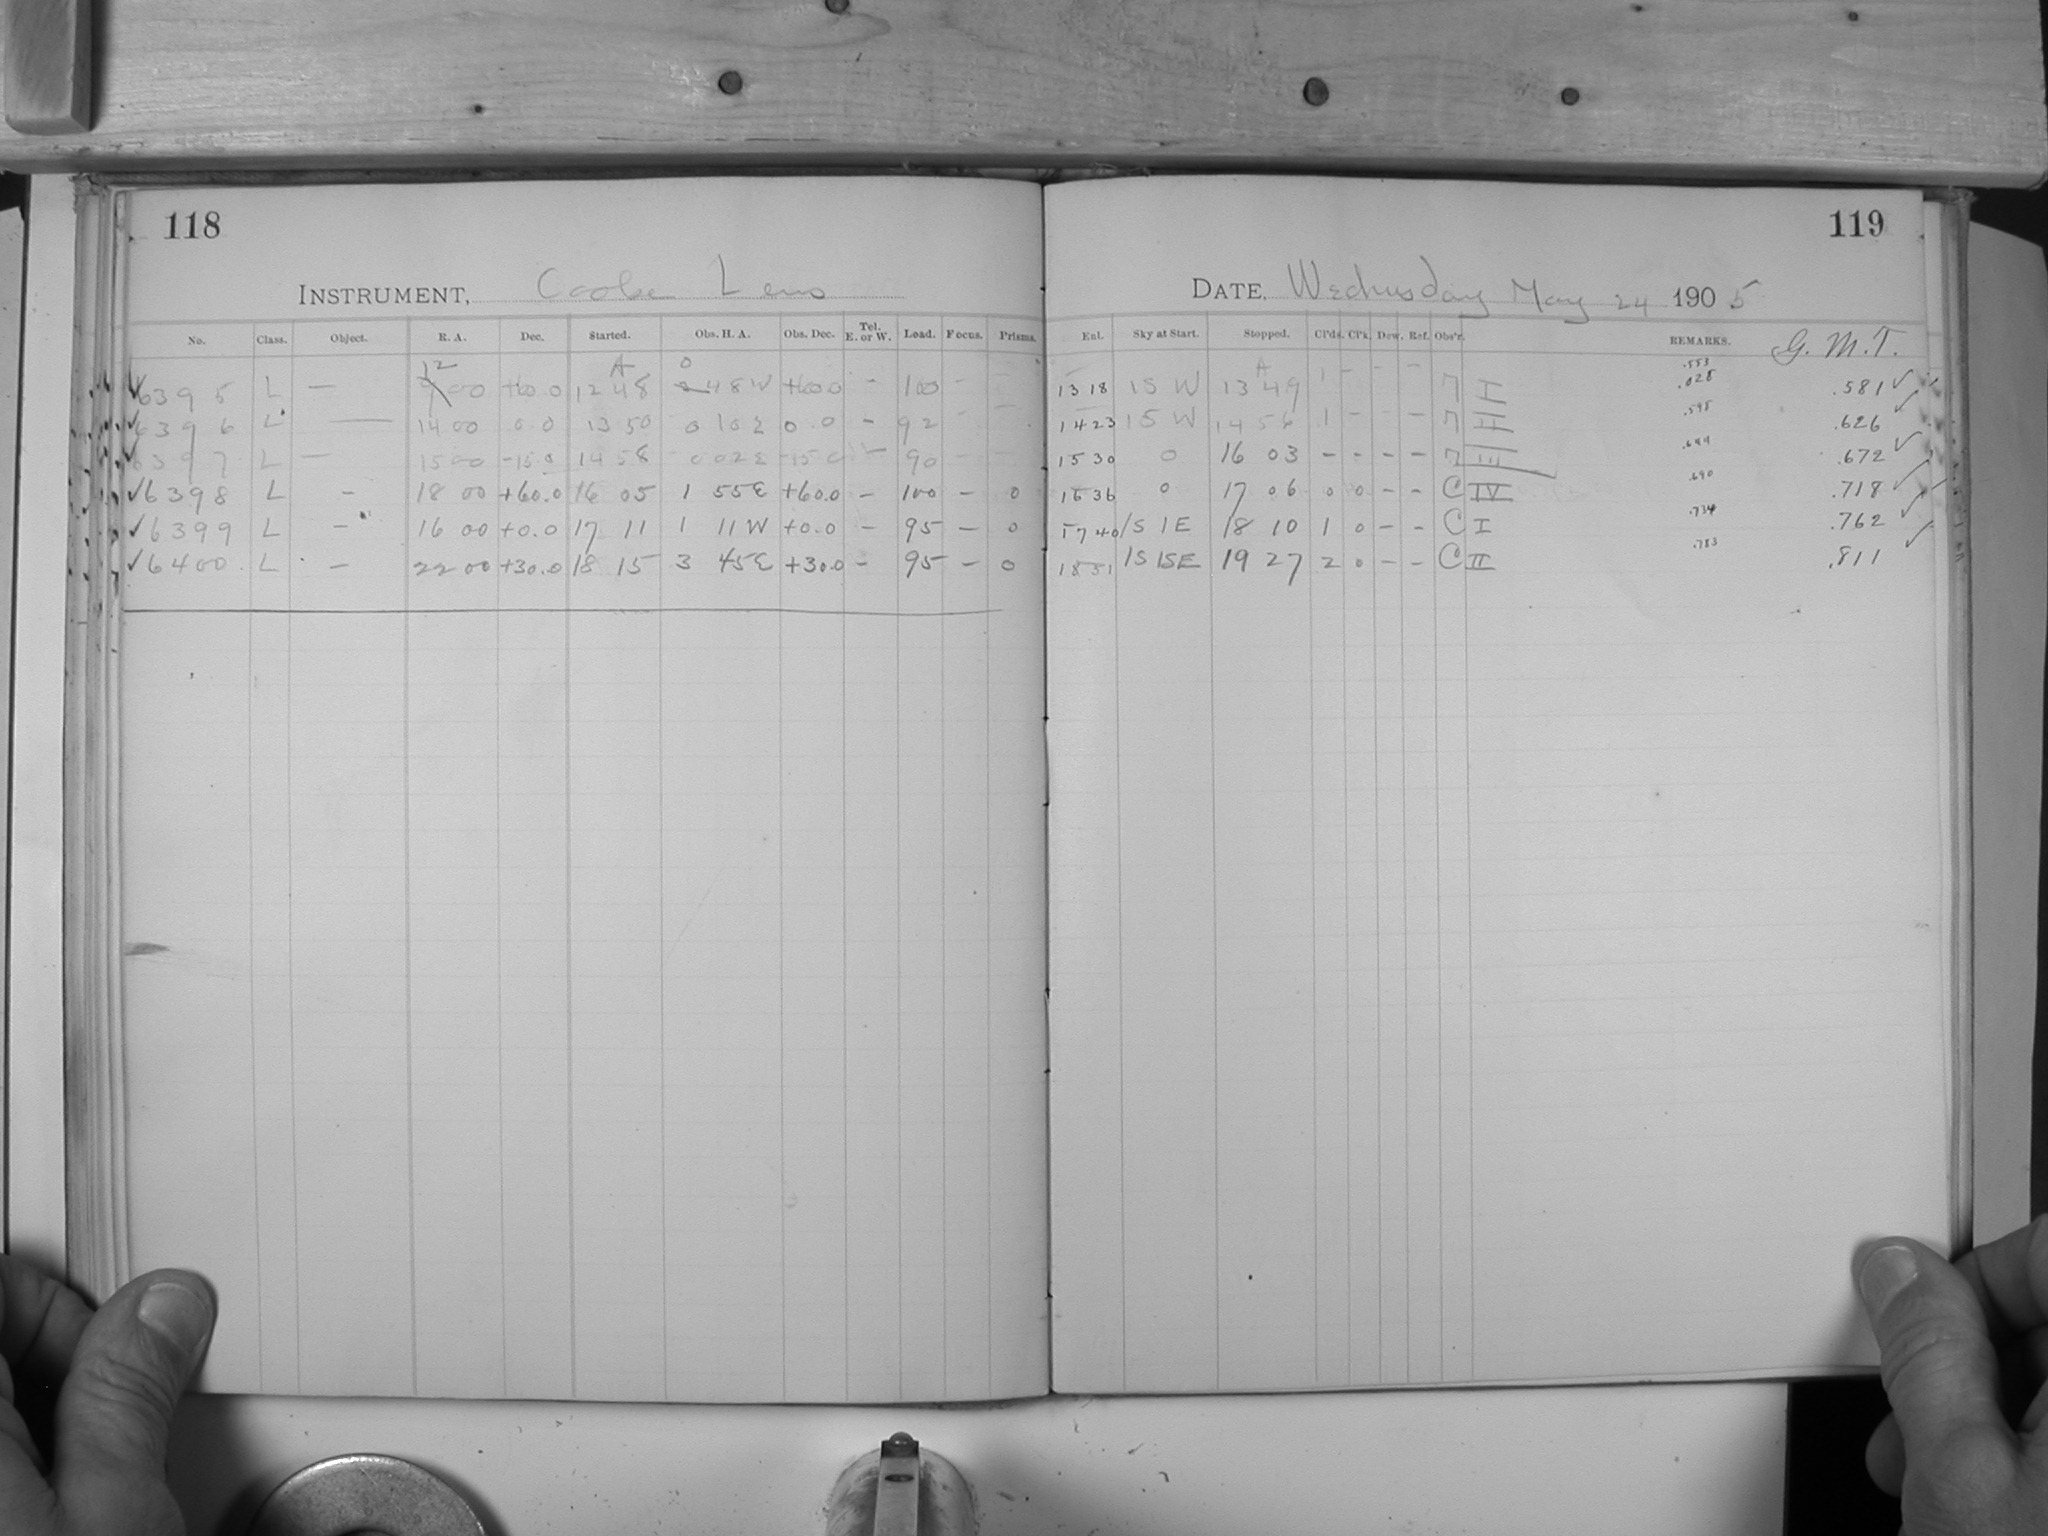 118
INSTRUMENT, Cooke Lens
No. Class. Object. R. A. Dec. Started. Obs. H. A. Obs. Dec. Tel. E. or W. Load. Focus. Prisms.
12 A 0
✓6395 L — 9 00 +60.0 12 48 48 W +60.0 – 100 – –
✓6396 L — 14 00 0.0 13 50 0 10 E 0.0 – 92 – –
✓6397 L — 15 00 -15.0 14 58 0 02 E -15.0 – 90 – –
✓6398 L – 18 00 +60.0 16 05 1 55 E +60.0 – 100 – 0
✓6399 L – 16 00 +0.0 17 11 1 11 W +0.0 – 95 – 0
✓6400 L – 22 00 +30.0 18 15 3 45 E +30.0 – 95 – 0
119
DATE, Wednesday May 24 1905
Enl. Sky at Start. Stopped. Cl'ds. Cl'k. Dew. Ref. Obs'r. REMARKS. G. M. T.
A .553
13 18 1S W 13 49 1 – – – 7 I .028 .581 ✓
14 23 1S W 14 56 1 – – – 7 II .595 .626 ✓
15 30 0 16 03 – – – – 7 III .644 .672 ✓
16 36 0 17 06 0 0 – – C IV .690 .718 ✓
17 40 1S 1E 18 10 1 0 – – C I .734 .762 ✓
18 51 1S 1SE 19 27 2 0 – – C II .783 .811 ✓